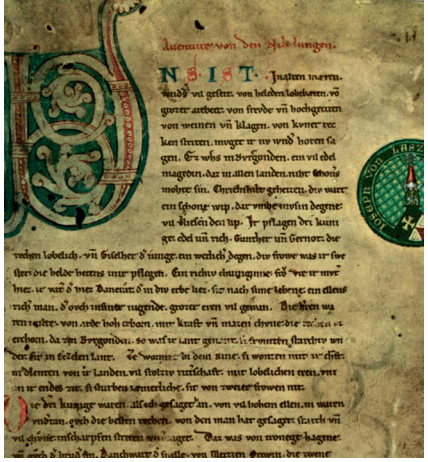 Auenture von den Nibelungen.
VNS IST. In alten mæren.
wnd's vil geseit. von heleden lobebæren. vō
grozer arebeit. von freude vn̄ hochgeciten
von weinen vn̄ klagen. von kvner rec
ken striten. mvget ir nv wnd' horen sa
gen. Ez whs in Bvrgonden. ein vil edel
magedin. daz in allen landen. niht schoners
mohte sin. Chriemhilt geheizen. div wart
ein schone wip. dar vmbe mvsin degene
vil v'liesen den lip. Ir pflagen dri kuni
ge. edel vn̄ rich. Gunther vn̄ Gernot. die
rechen lobelich. vn̄ Giselher d' iunge. ein wetlich degen. div frowe was ir swe
ster. die helde hetens inir pflegen. Ein richiv chuniginne. frō vte ir mvt'
hiez. ir vat' d' hiez Dancrat. d' in div erbe liez. sit nach sime lebene. ein ellens
rich man. d' ovch insiner iugende. grozer eren vil gewan. Die h'ren wa
ren milte. von arde hoh erborn. mit kraft vn̄ mazen chvne. die rechen vz
erchorn. da zen Bvrgonden. so was ir lant genant. si frvmten starchiv wn
der. sit in Ezelen lant. Ze wormz bi dem Rine. si wonten mit ir chft.
in dienten von ir landen. vil stolziv ritt'schaft. mit lobelichen eren. vnz
an ir endes zit. si sturben iæmerliche. sit von zweier frowen nit.
Die dri kunige waren. als ich gesaget han. von vil hohem ellen. in waren
vndtan. ovch die besten rechen. von den man hat gesaget. starch vn̄
vil chvne. in scharpfen striten vnv'zaget. Daz was von tronege hagene.
vn̄ ovch d' brvd' sin. Danchwart d' snelle. von Metzzen Ortwin. die zwene
IOSEPH VON LASZ